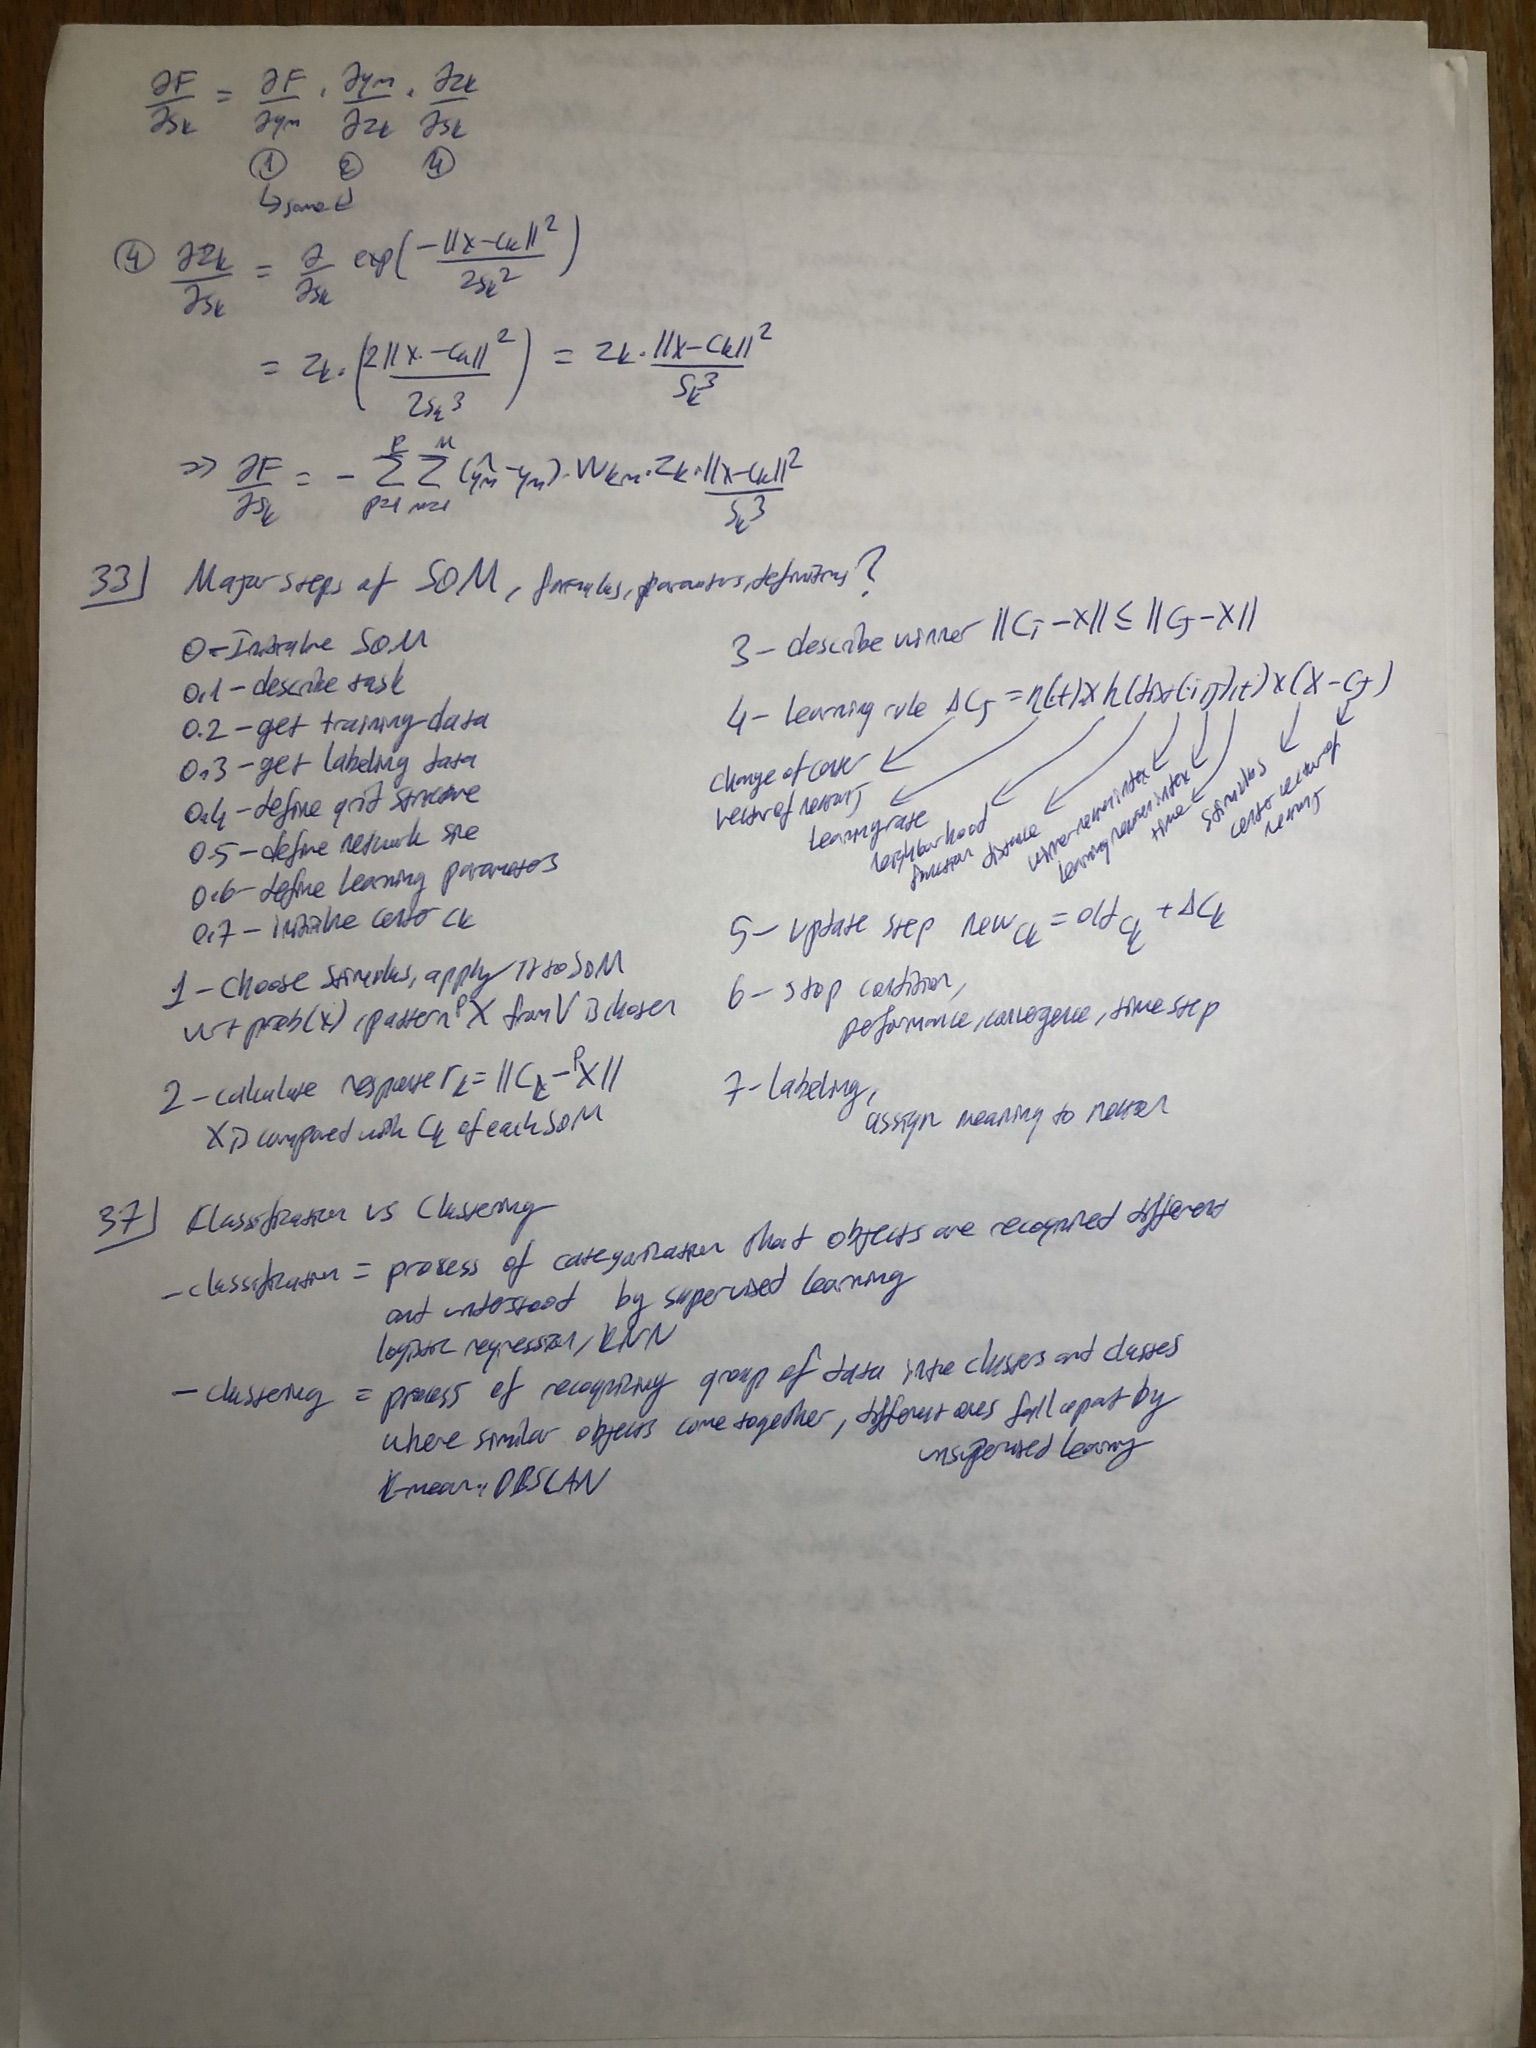 ∂F/∂sk = ∂F/∂ym · ∂ym/∂zk · ∂zk/∂sk
① ② ④
↳ same ↲
④ ∂zk/∂sk = ∂/∂sk exp(-||x-ck||²/2sk²)
= zk·(2||x-ck||²/2sk³) = zk·||x-ck||²/sk³
=> ∂F/∂sk = - Σ(p=1..P) Σ(m=1..M) (ŷm-ym)·wkm·zk·||x-ck||²/sk³
33) Major steps of SOM, formulas, parameters, definitions?
0- Initialize SOM
0.1- describe task
0.2- get training data
0.3- get labeling data
0.4- define grid structure
0.5- define network size
0.6- define learning parameters
0.7- initialize center ck
1- Choose stimulus, apply it to SOM
wrt prob(x), pattern ᵖX from V is chosen
2- calculate response rk = ||Ck - ᵖX||
X is compared with Ck of each SOM
3- describe winner ||Ci - X|| ≤ ||Cj - X||
4- learning rule ΔCj = η(t) x h(dist(i,j),t) x (X - Cj)
change of center
vector of neuron j
learning rate
neighbourhood
function
distance
winner neuron index
learning neuron index
time
stimulus
center vector of
neuron j
5- update step new Ck = old Ck + ΔCk
6- stop condition,
performance, convergence, time step
7- labeling,
assign meaning to neuron
37) Classification vs Clustering
- classification = process of categorization that objects are recognized different
and understood by supervised learning
logistic regression, KNN
- clustering = process of recognizing group of data into clusters and classes
where similar objects come together, different ones fall apart by
unsupervised learning
K-mean, DBSCAN